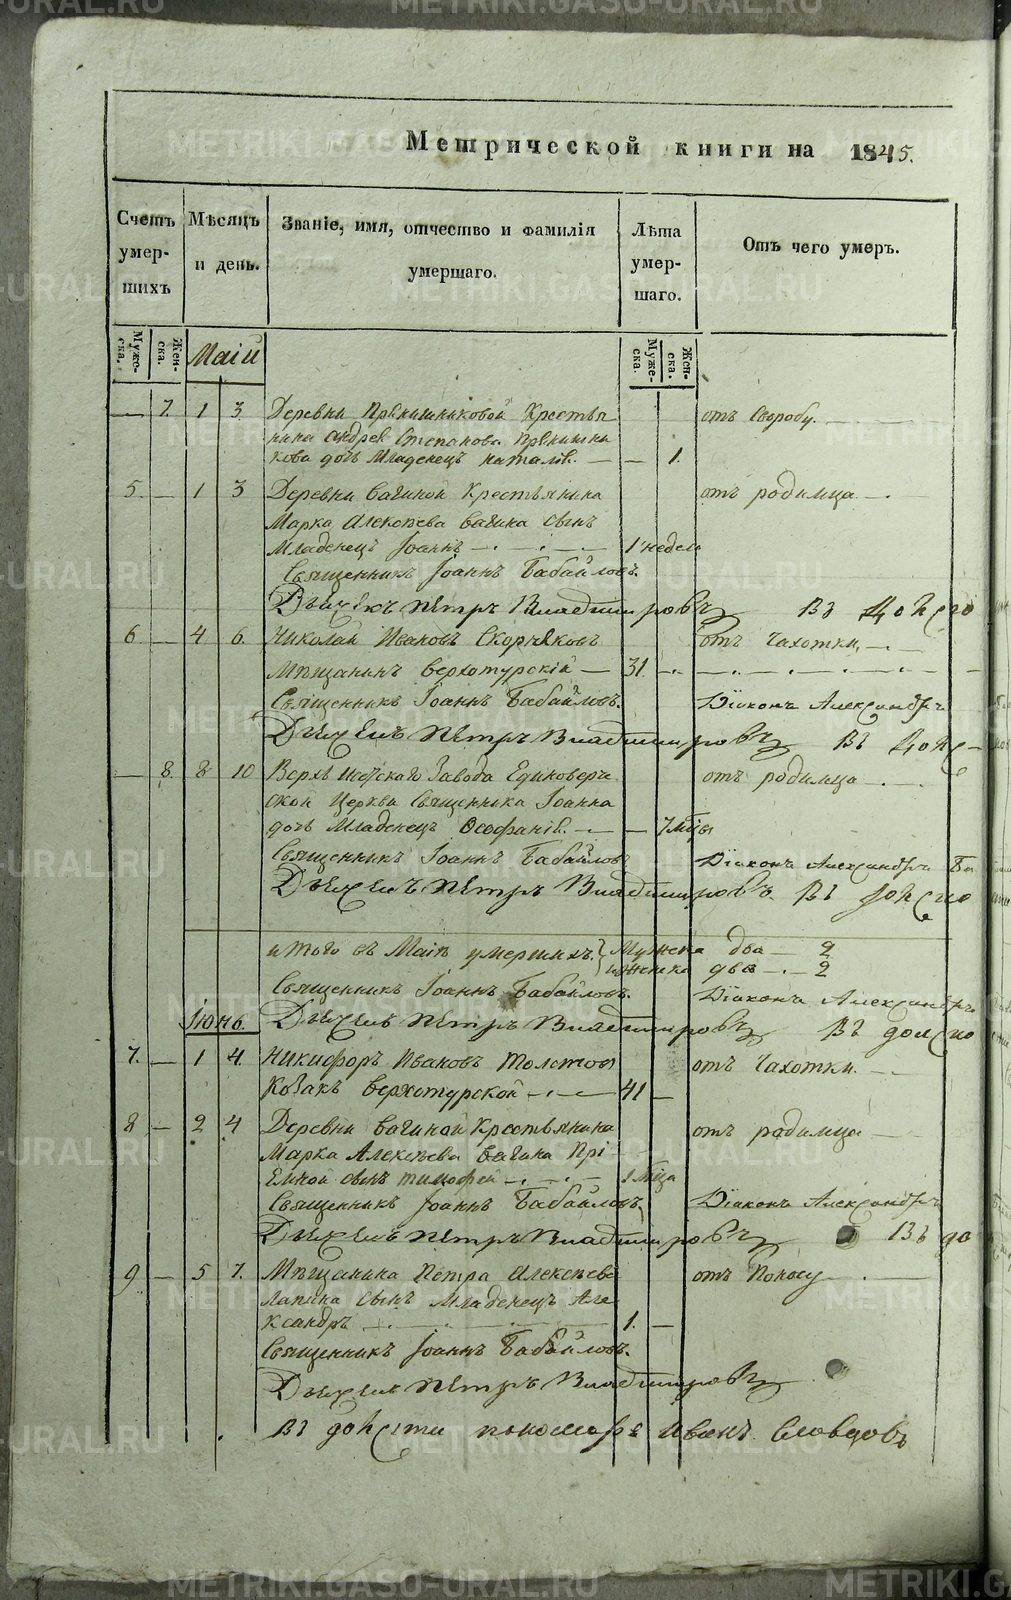 Метрической книги на 1845.
Счетъ умершихъ
Мѣсяцъ и день.
Званіе, имя, отчество и фамилія умершаго.
Лѣта умершаго.
Отъ чего умеръ.
Мужеска.
Женска.
Маій
Мужеска.
Женска.
— 7. 1 3 Деревни Прянишниковой Крестья
нина Андрея Степанова Прянишни
кова дочь Младенецъ Наталія — — 1. отъ Своробу.
5. — 1 3 Деревни Вагиной Крестьянина отъ родимца —
Марка Алексѣева Вагина сынъ
Младенецъ Іоаннъ — 1 недел
Священникъ Іоаннъ Бабайловъ.
Дьячекъ Петръ Владимировъ Въ должно
6. — 4 6. Николай Ивановъ Скорняковъ отъ Чахотки, —
Мѣщанинъ Верхотурскій — 31. —
Священникъ Іоаннъ Бабайловъ. Діаконъ Александръ
Дьячекъ Петръ Владимировъ Въ долж
— 8. 8 10 Верхъ Исетскаго Завода Единоверче
ской Церкви Священника Іоанна
дочь Младенецъ Ѳеофанія — — 7 мѣцы отъ родимца —
Священникъ Іоаннъ Бабайловъ Діаконъ Александръ Ба
Дьячекъ Петръ Владимировъ. Въ должно
итого въ Маіѣ умершихъ. Мужска два — 2
и женска два — 2
Священникъ Іоаннъ Бабайловъ. Діаконъ Александръ
Іюнь. Дьячекъ Петръ Владимировъ Въ должно
7. — 1 4. Никифоръ Ивановъ Толстой отъ Чахотки. —
Козакъ Верхотурской — 41 —
8 — 2 4 Деревни Вагиной Крестьянина отъ родимца —
Марка Алексѣева Вагина Прі
емной сынъ Тимофей — мца
Священникъ Іоаннъ Бабайловъ. Діаконъ Александръ
Дьячекъ Петръ Владимировъ Въ до
9 — 5 7. Мѣщанина Петра Алексѣева отъ Поносу —
Лапина сынъ Младенецъ Але
ксандръ — 1. —
Священникъ Іоаннъ Бабайловъ.
Дьячекъ Петръ Владимировъ
Въ должности пономаря Иванъ Словцовъ
METRIKI.GASO-URAL.RU